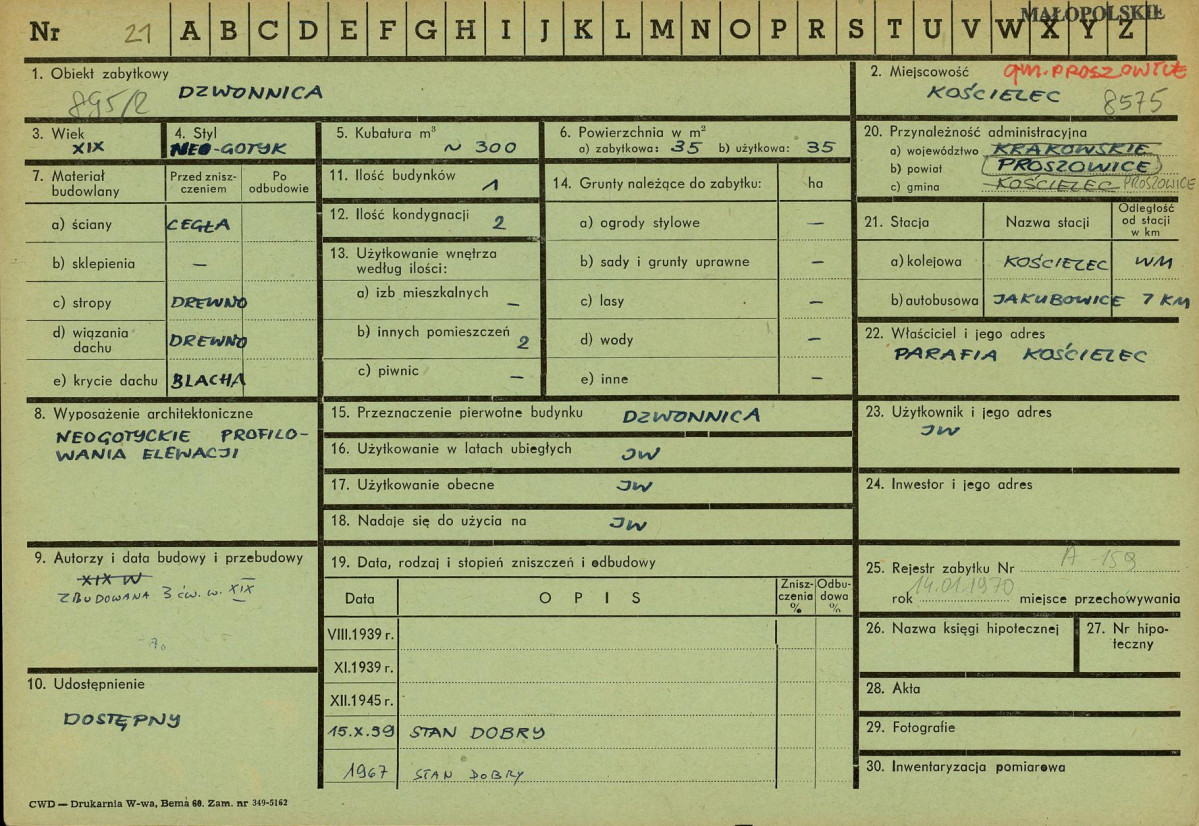 MAŁOPOLSKIE
Nr 21 A B C D E F G H I J K L M N O P R S T U V W X Y Z
1. Obiekt zabytkowy
895/2 DZWONNICA
2. Miejscowość gm. PROSZOWICE
KOŚCIELEC 8575
3. Wiek
XIX
4. Styl
NEO-GOTYK
5. Kubatura m³
~ 300
6. Powierzchnia w m²
a) zabytkowa: 35 b) użytkowa: 35
20. Przynależność administracyjna
a) województwo KRAKOWSKIE
b) powiat PROSZOWICE
c) gmina KOŚCIELEC PROSZOWICE
7. Materiał budowlany
Przed zniszczeniem
Po odbudowie
a) ściany CEGŁA
b) sklepienia —
c) stropy DREWNO
d) wiązania dachu DREWNO
e) krycie dachu BLACHA
11. Ilość budynków 1
12. Ilość kondygnacji 2
13. Użytkowanie wnętrza
według ilości:
a) izb mieszkalnych —
b) innych pomieszczeń 2
c) piwnic —
14. Grunty należące do zabytku: ha
a) ogrody stylowe —
b) sady i grunty uprawne —
c) lasy —
d) wody —
e) inne —
21. Stacja Nazwa stacji Odległość od stacji w km
a) kolejowa KOŚCIELEC WM
b) autobusowa JAKUBOWICE 7 KM
22. Właściciel i jego adres
PARAFIA KOŚCIELEC
8. Wyposażenie architektoniczne
NEOGOTYCKIE PROFILO-
WANIA ELEWACJI
15. Przeznaczenie pierwotne budynku DZWONNICA
16. Użytkowanie w latach ubiegłych JW
17. Użytkowanie obecne JW
18. Nadaje się do użycia na JW
23. Użytkownik i jego adres
JW
24. Inwestor i jego adres
9. Autorzy i data budowy i przebudowy
XIX W
ZBUDOWANA 3 ćw. w. XIX
19. Data, rodzaj i stopień zniszczeń i odbudowy
Data OPIS Zniszczenia % Odbudowa %
VIII.1939 r.
XI.1939 r.
XII.1945 r.
15.X.59 STAN DOBRY
1967 STAN DOBRY
25. Rejestr zabytku Nr A 159
rok 14.01.1970 miejsce przechowywania
26. Nazwa księgi hipotecznej
27. Nr hipo-
teczny
10. Udostępnienie
DOSTĘPNY
28. Akta
29. Fotografie
30. Inwentaryzacja pomiarowa
CWD — Drukarnia W-wa, Bema 60. Zam. nr 349-5162